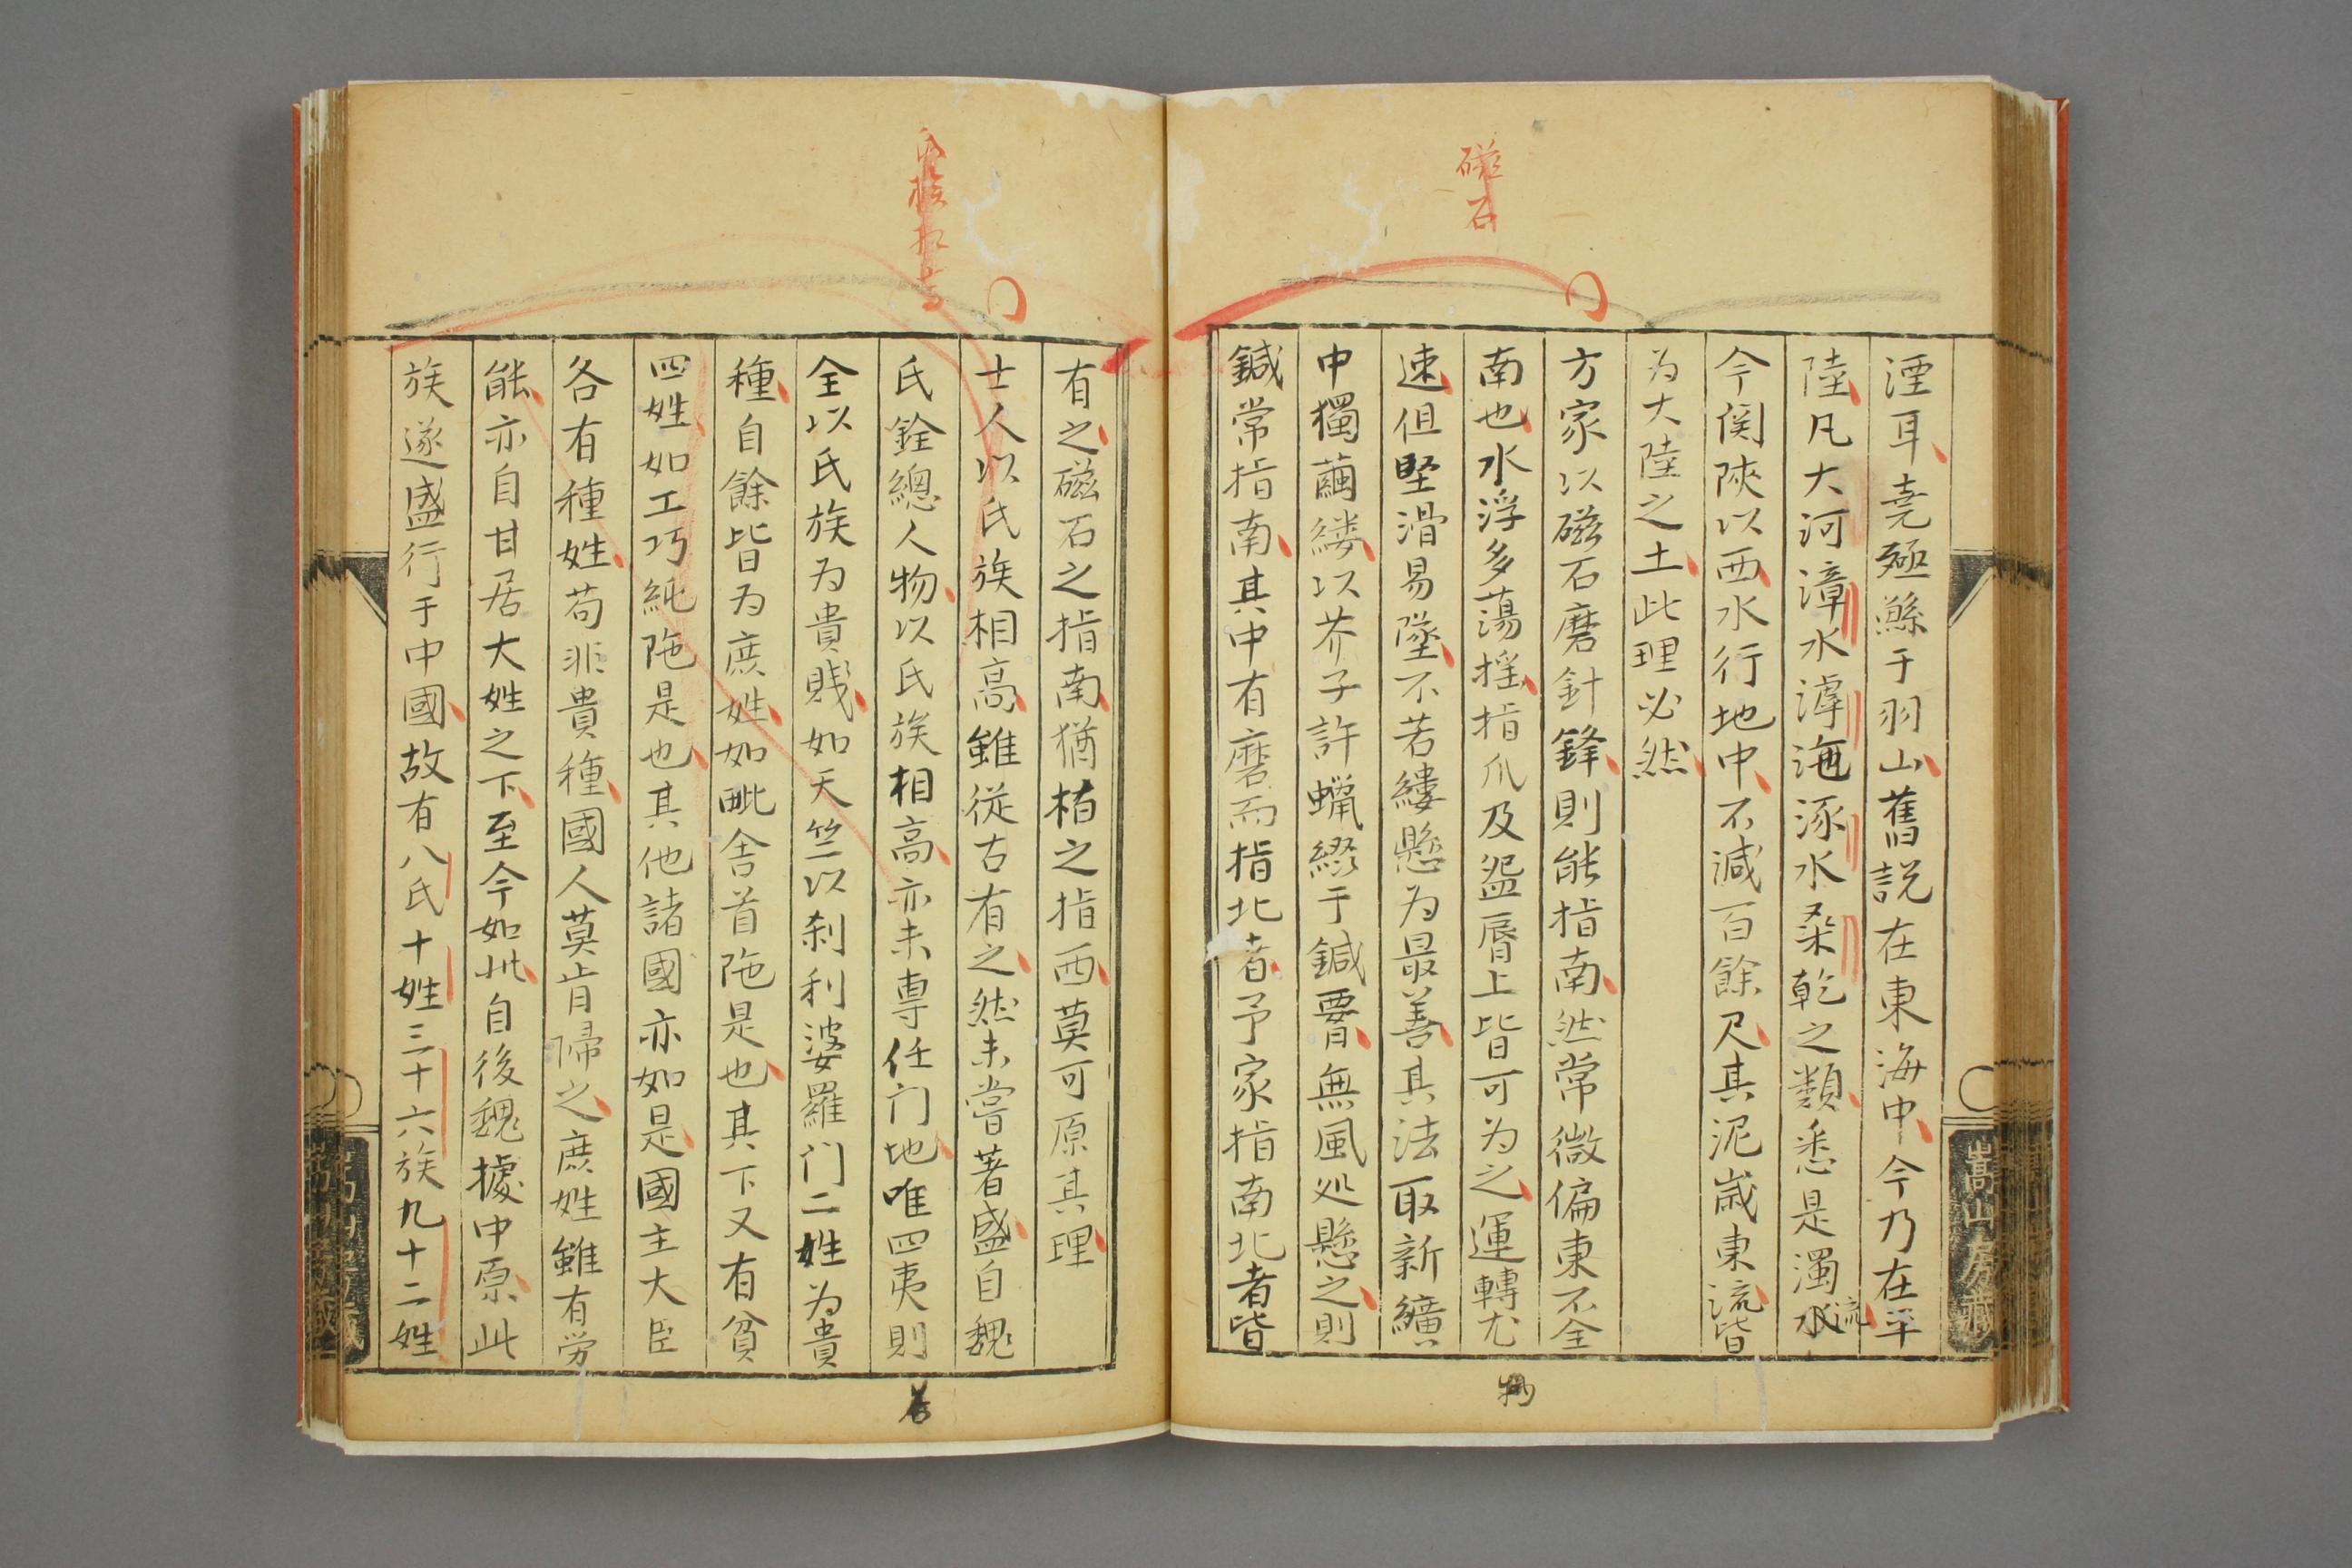 磁石
湮耳堯殛鯀于羽山舊説在東海中今乃在平
陸凡大河漳水滹沲涿水桑乾之類悉是濁水流
今関陝以西水行地中不減百餘尺其泥歳東流皆
为大陸之土此理必然
方家以磁石磨針鋒則能指南然常微偏東不全
南也水浮多蕩揺指爪及盌脣上皆可为之運轉尤
速但堅滑易墜不若縷懸为最善其法取新纊
中獨繭縷以芥子許蠟綴于鍼腰無風処懸之則
鍼常指南其中有磨而指北者予家指南北者皆
嵩山房藏
有之磁石之指南猶栢之指西莫可原其理
士人以氏族相高雖従古有之然未嘗著盛自魏
氏銓總人物以氏族相高亦未専任门地唯四夷則
全以氏族为貴賤如天竺以刹利婆羅门二姓为貴
種自餘皆为庶姓如毗舎首陁是也其下又有貧
四姓如工巧純陁是也其他諸國亦如是國主大臣
各有種姓苟非貴種國人莫肯帰之庶姓雖有労
能亦自甘居大姓之下至今如此自後魏據中原此
族遂盛行于中國故有八氏十姓三十六族九十二姓